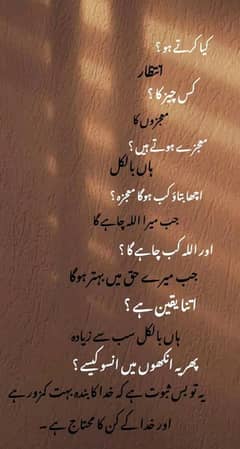 کیا کرتے ہو؟
انتظار
کس چیز کا؟
معجزوں کا
معجزے ہوتے ہیں؟
ہاں بالکل
اچھا بتاؤ کب ہوگا معجزہ؟
جب میرا اللہ چاہے گا
اور اللہ کب چاہے گا؟
جب میرے حق میں بہتر ہوگا
اتنا یقین ہے؟
ہاں بالکل سب سے زیادہ
پھر یہ انکھوں میں انسو کیسے؟
یہ تو بس ثبوت ہے کہ خدا کا بندہ بہت کمزور ہے
اور خدا کے کن کا محتاج ہے ۔